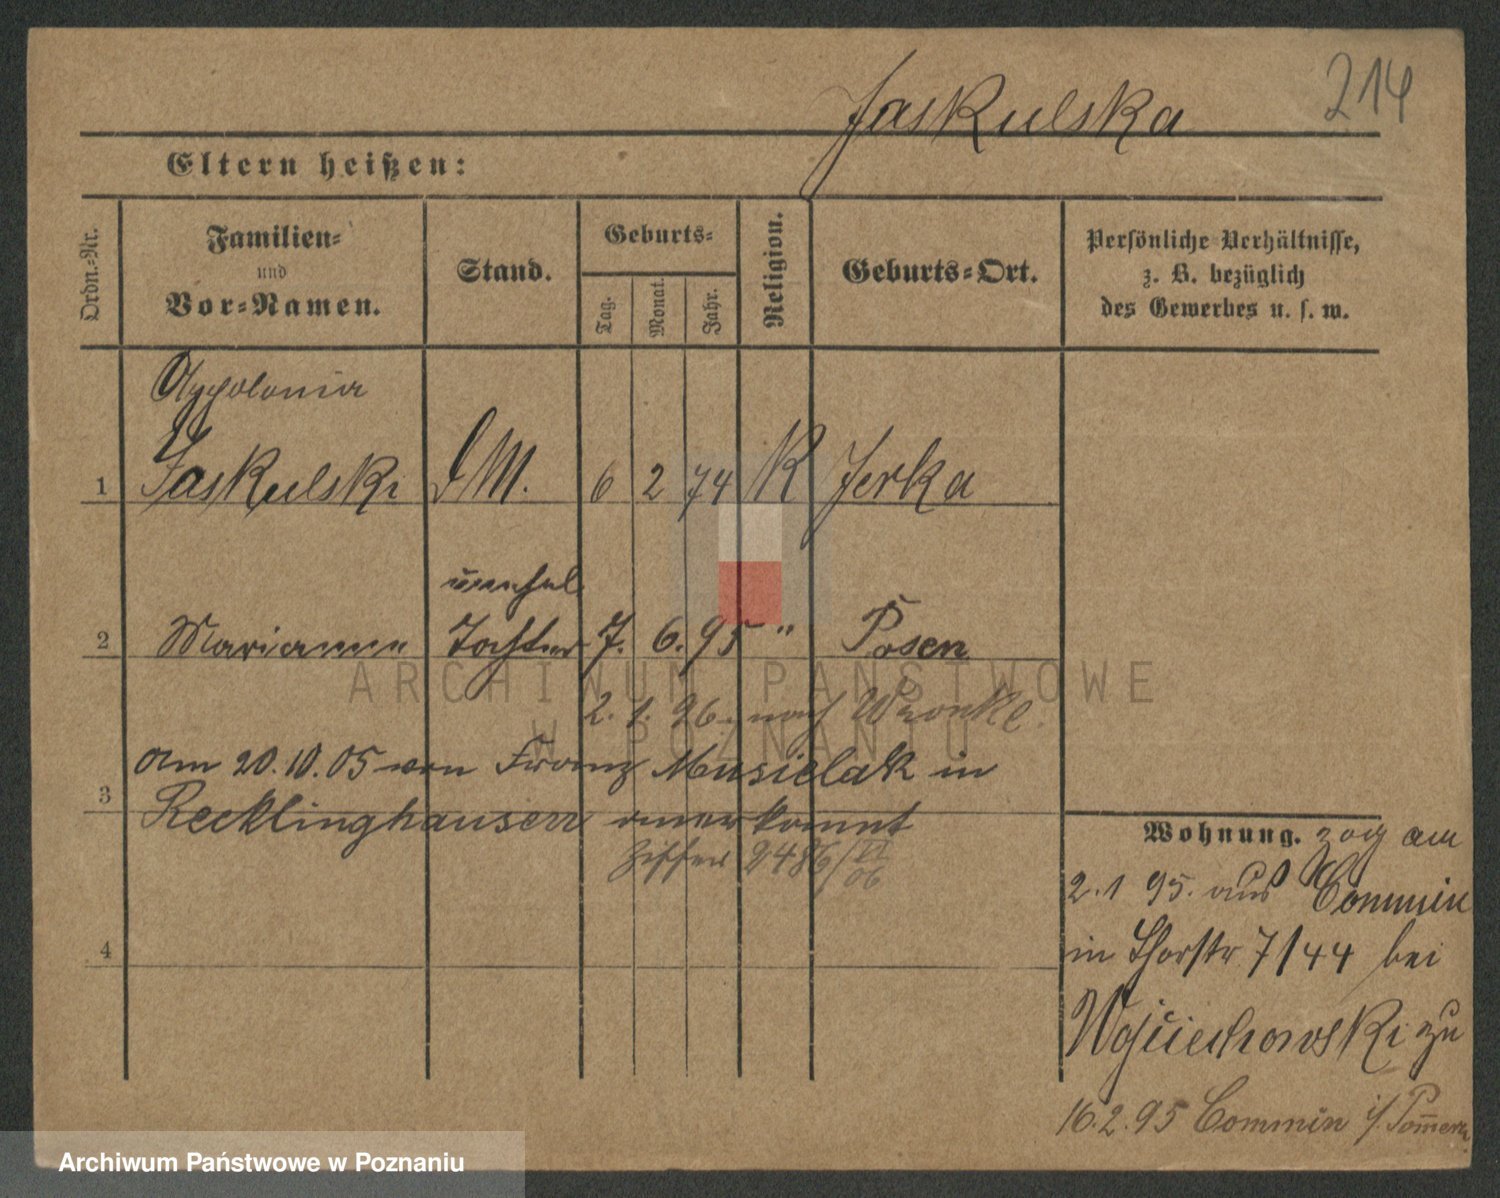 Jaskulska
214
Eltern heißen:
Ordn.-Nr.
Familien-
und
Vor-Namen.
Stand.
Geburts-
Tag.
Monat.
Jahr.
Religion.
Geburts-Ort.
Persönliche Verhältnisse,
z. B. bezüglich
des Gewerbes u. s. w.
Appolonia
1 Jaskulski DM. 6 2 74 K Jerka
unehel
2 Marianna Tochter 7. 6. 95 " Posen
2. 1. 96. nach Wronke.
am 20.10.05 von Franz Musielak in
3
Recklinghausen anerkannt
Ziffer 2486/VI 06
4
Wohnung. zog am
2.1 95. aus Commin
in Thorstr 7/44 bei
Wojciechowski zu
16.2.95 Commin i/Pommern
ARCHIWUM PAŃSTWOWE
W POZNANIU
Archiwum Państwowe w Poznaniu